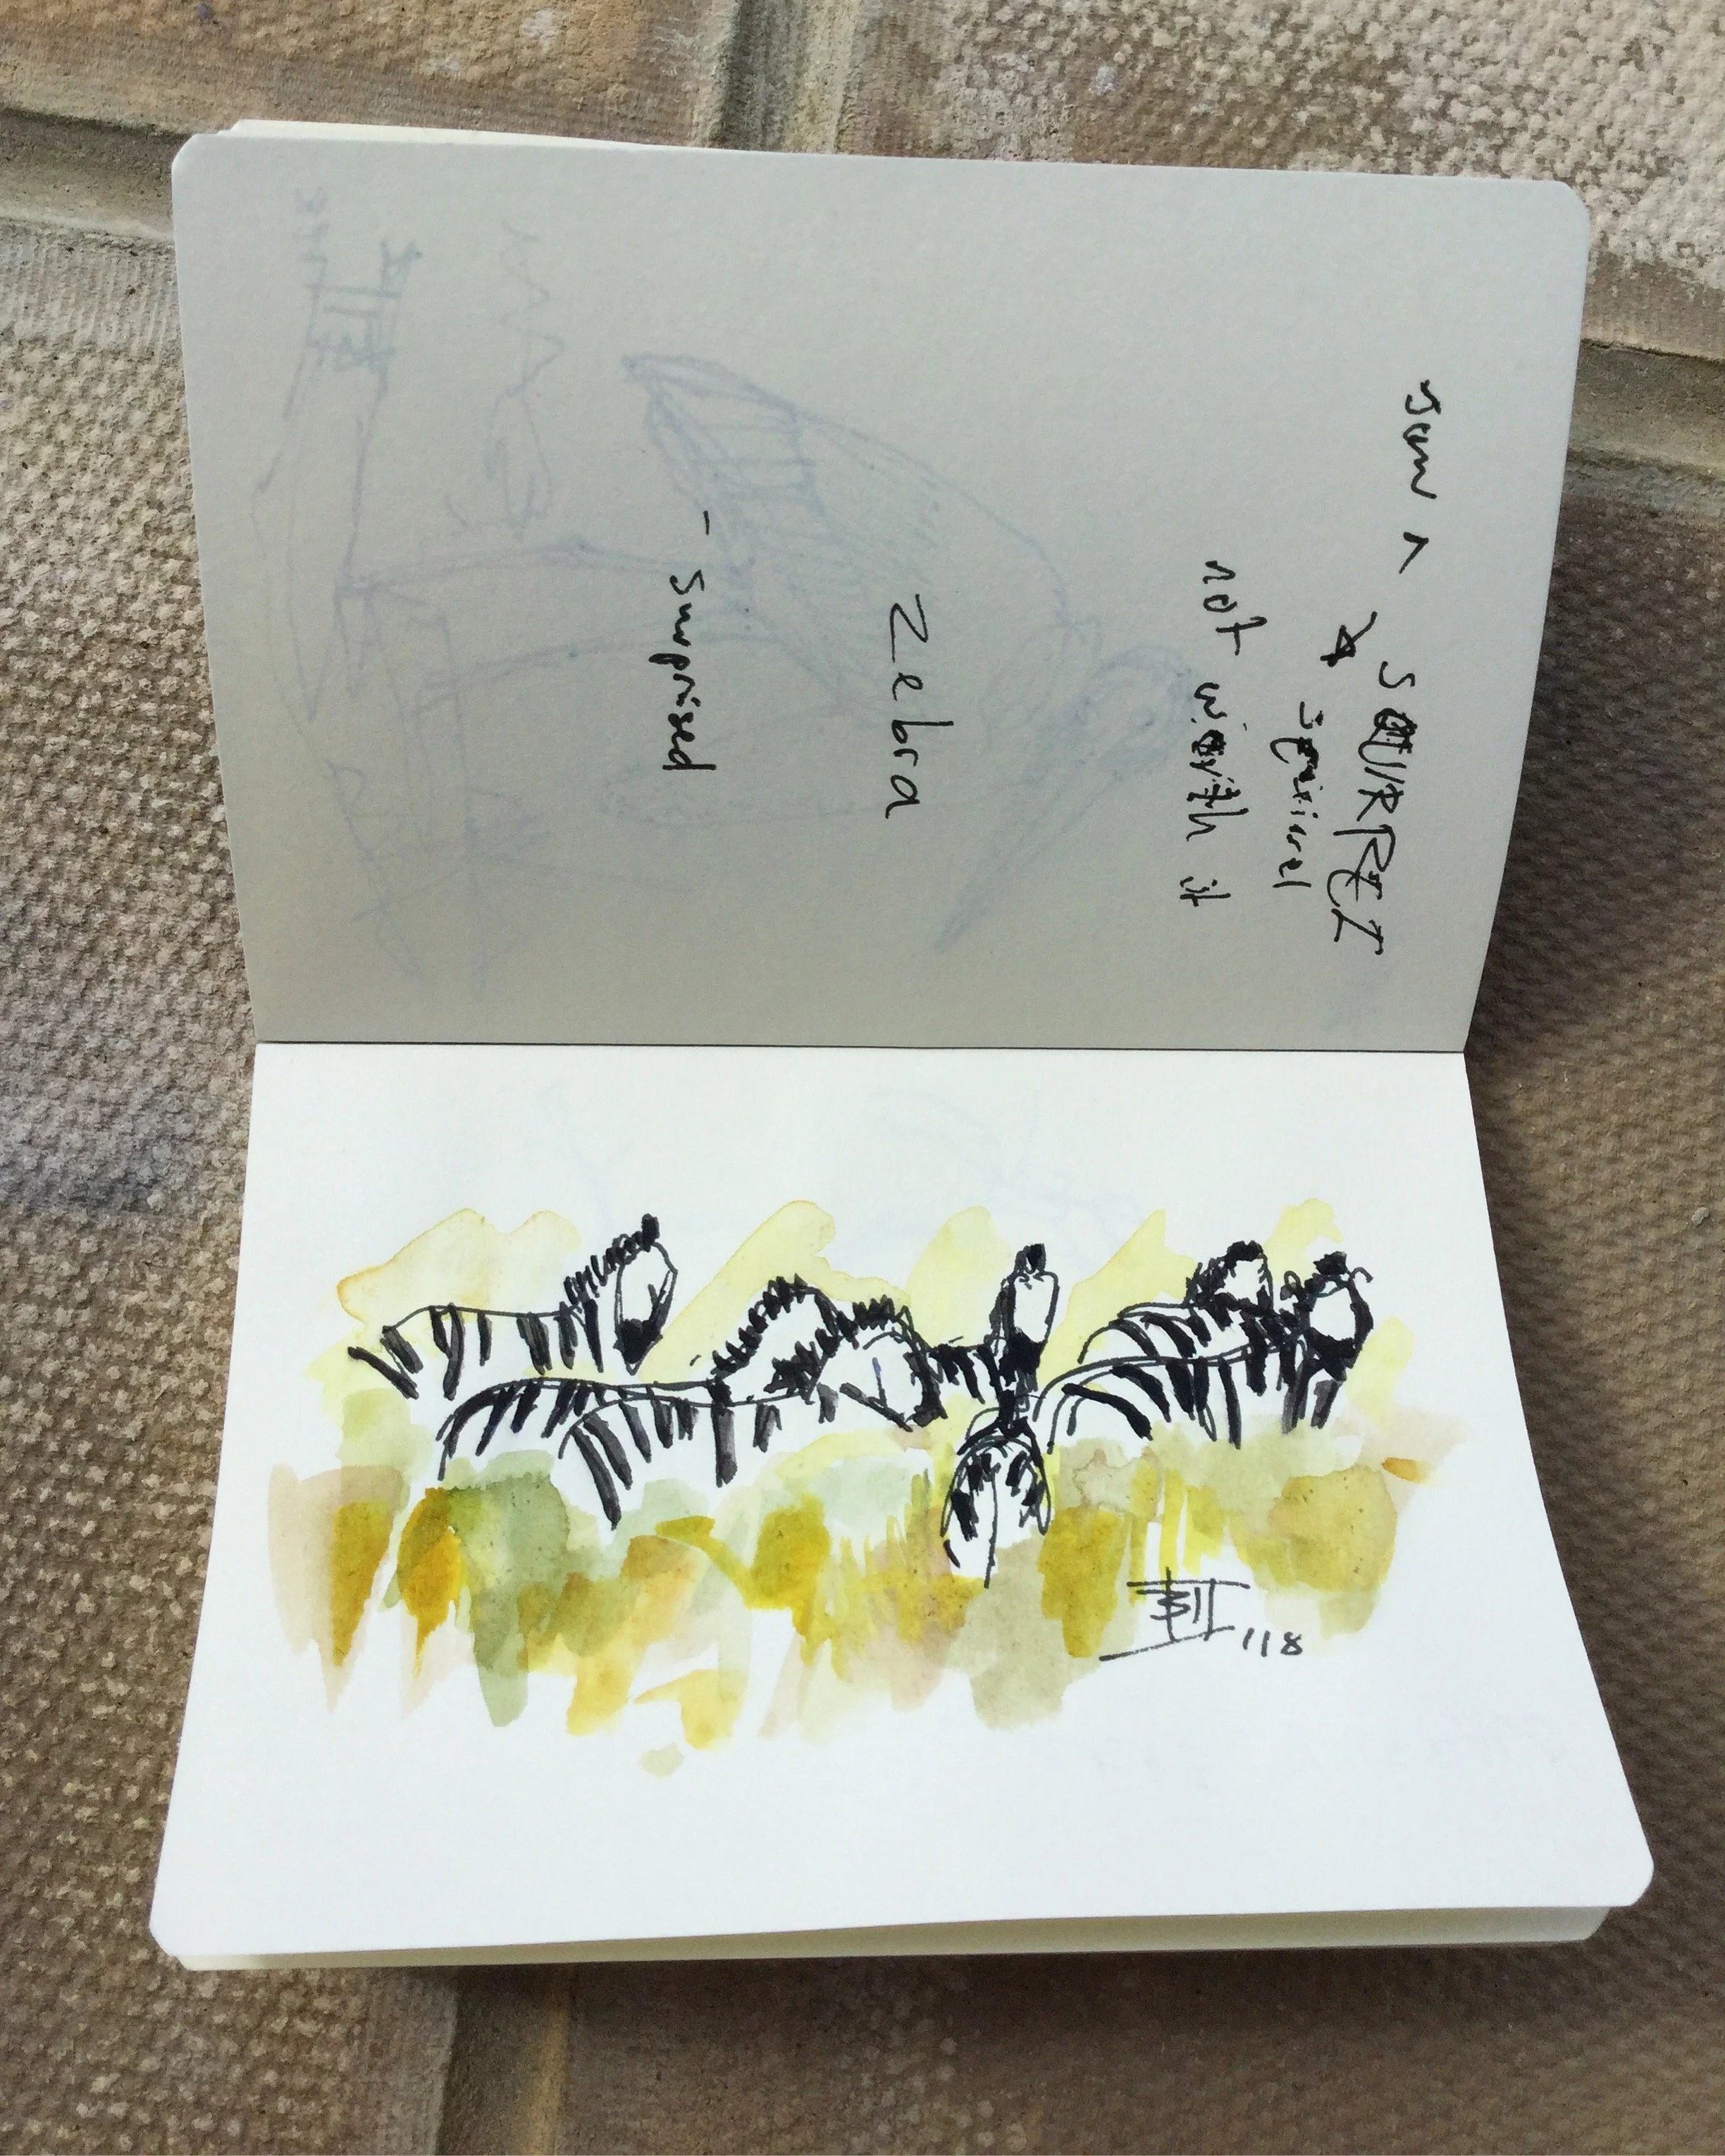 SQUIRREL
squirrel
not worth it
Zebra
- surprised
'18